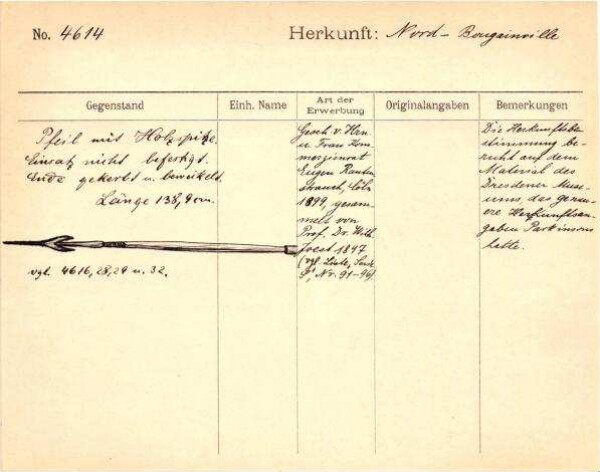 No. 4614
Herkunft: Nord-Bougainville
Gegenstand
Einh. Name
Art der
Erwerbung
Originalangaben
Bemerkungen
Pfeil mit Holzspitze.
Einsatz nicht befestigt.
Ende gekerbt u. bewickelt.
Länge 138,9 cm.
vgl. 4616, 28, 29 u. 32.
Gesch. v. Hrn
u. Frau Kom-
merzienrat
Eugen Rauten-
strauch, Cöln
1899, gesam-
melt von
Prof. Dr. Wilh.
Joest 1897
(vgl. Liste, Seite
Nr. 91-96)
Die Herkunftsbe-
stimmung be-
ruht auf dem
Material des
Dresdener Muse-
ums, das genau-
ere Herkunftsan-
gaben Parkinsons
hatte.